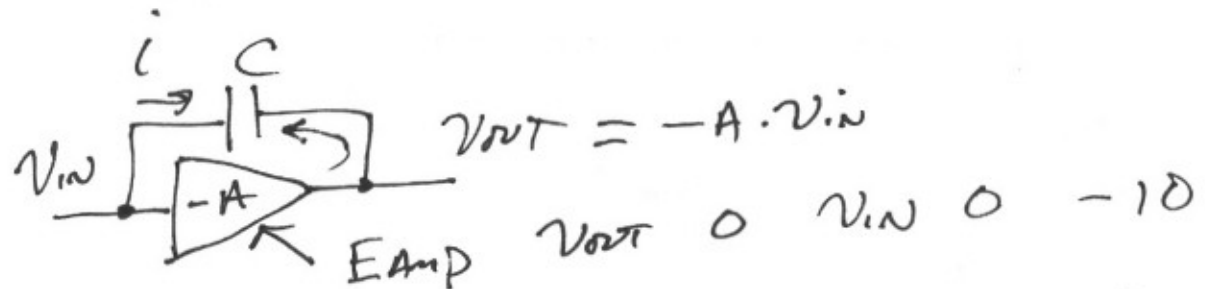 i C
VIN -A VOUT = -A · VIN
EAmp VOUT 0 VIN 0 -10